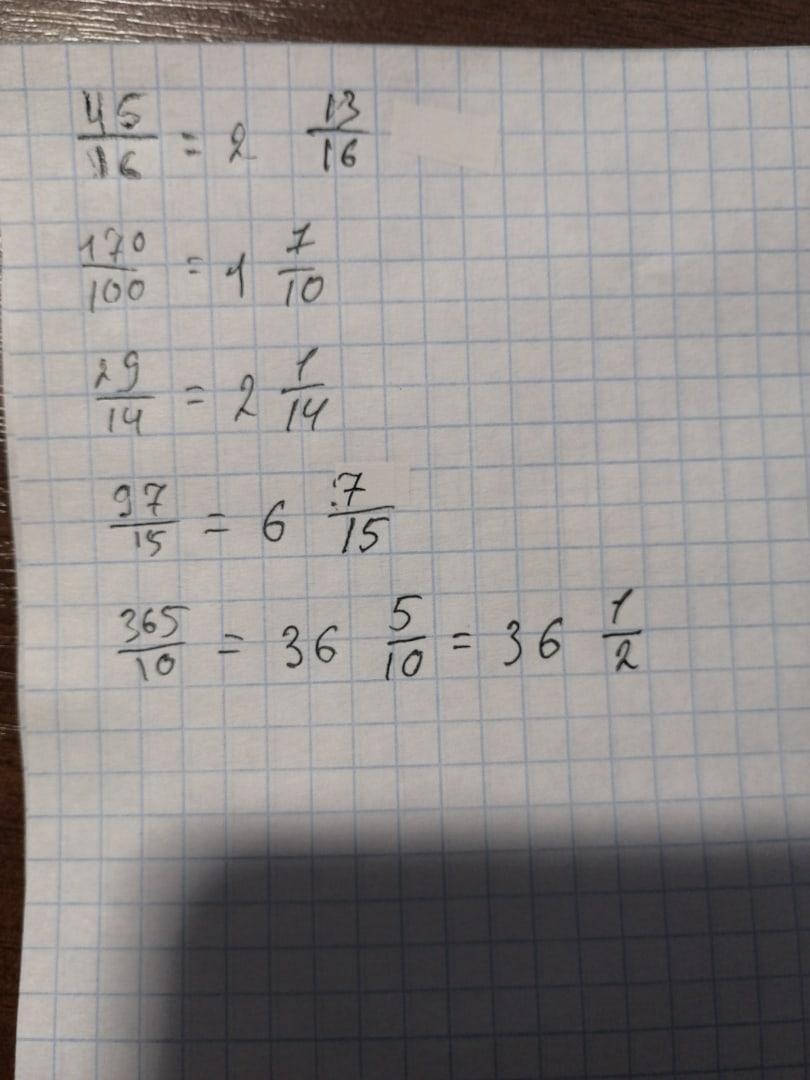 45/16 = 2 13/16
170/100 = 1 7/10
29/14 = 2 1/14
97/15 = 6 7/15
365/10 = 36 5/10 = 36 1/2